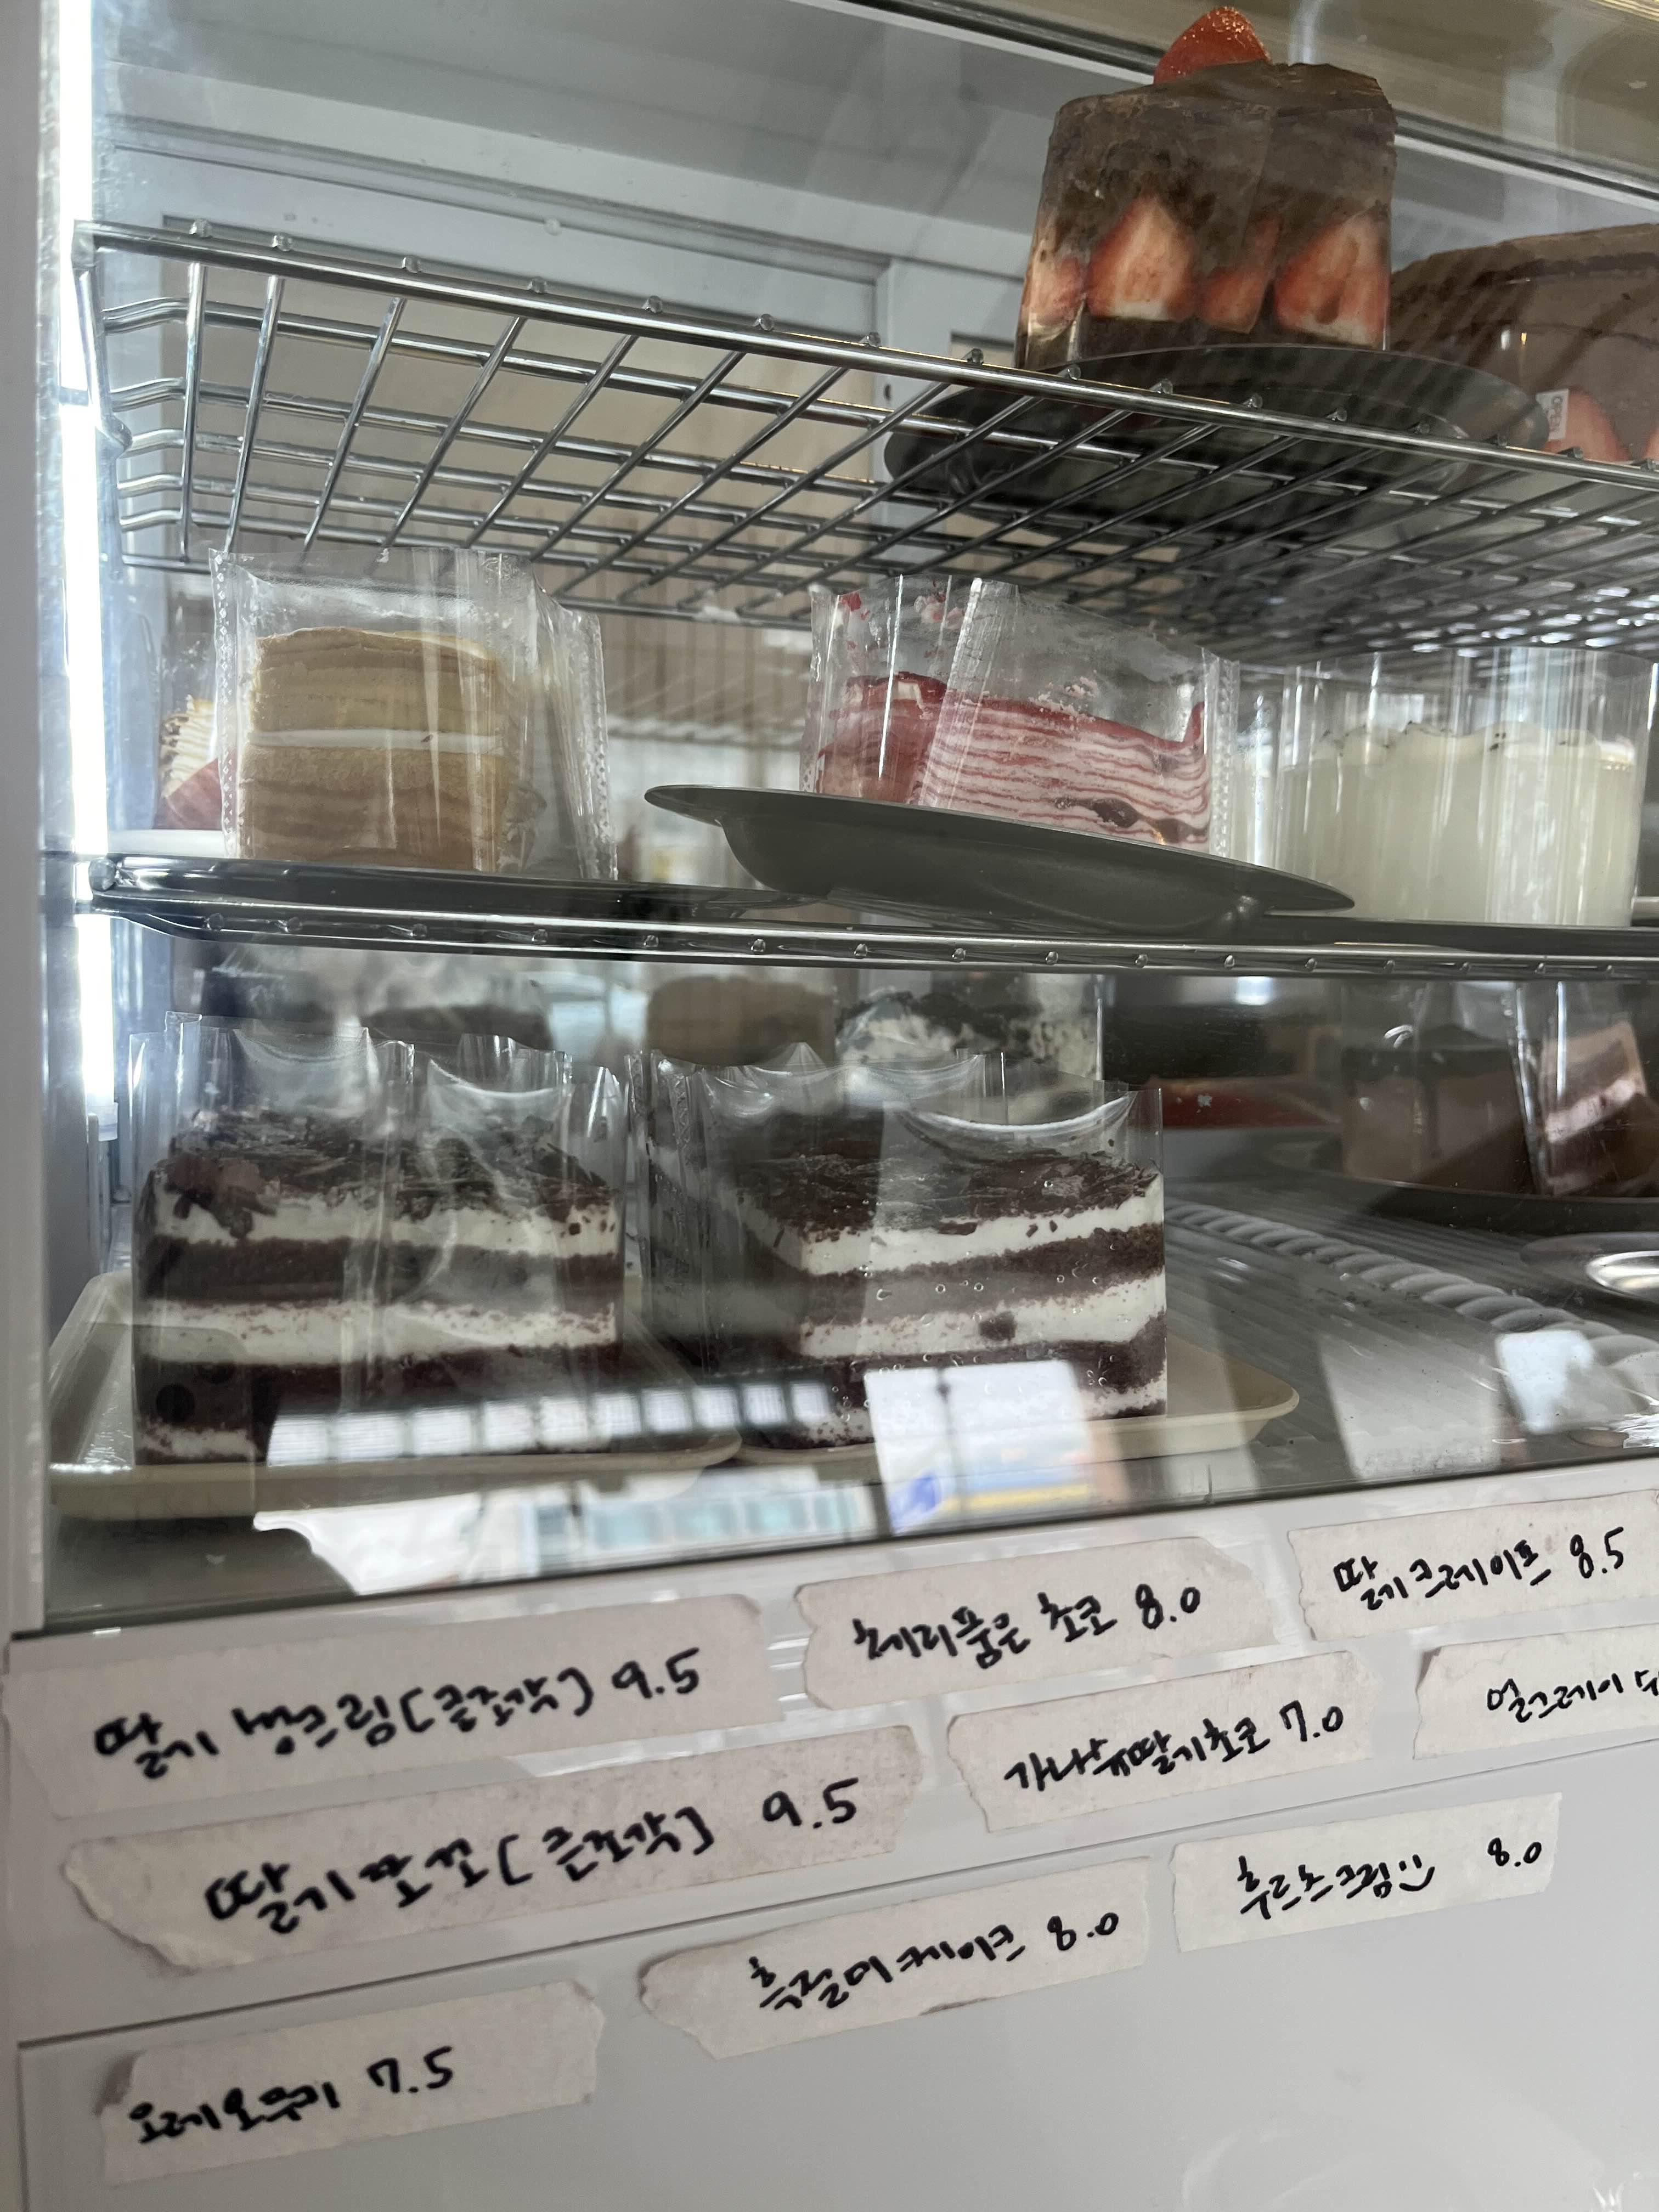 딸기 생크림(큰조각) 9.5
체리품은 초코 8.0
딸기크레이프 8.5
딸기초코(큰조각) 9.5
가나슈딸기초코 7.0
얼그레이
8.0
후르츠크림:) 8.0
오레오쿠키 7.5